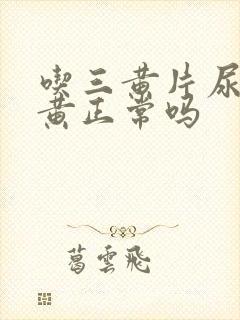 喫三黄片尿
黄正常吗
葛雲飛